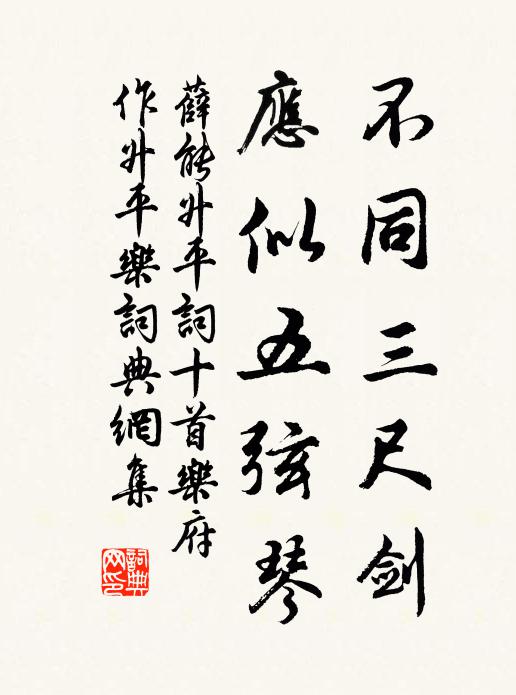 不同三尺劍
應似五弦琴
薛能升平詞十首樂府
作升平樂詞典網集
詞典网印